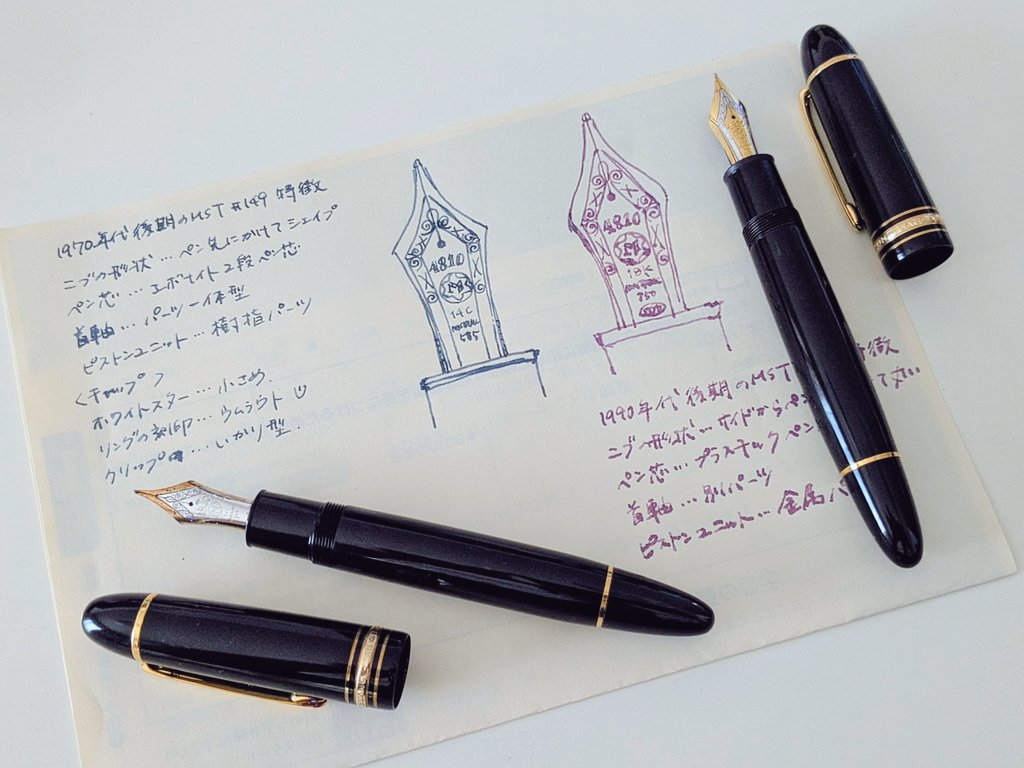 1970年代後期のMST #149 特徴
ニブの形状…ペン先にかけてシェイプ
ペン芯…エボナイト2段ペン芯
首軸…パーツ一体型
ピストンユニット…樹指パーツ
<キャップ>
ホワイトスター…小さめ.
リングの刻印…ウムラウト
クリップ…いかり型.
4810
14C
585
4810
18K
750
1990年代後期のMST 特徴
ニブ形状…サイドからペン
ペン芯…プラスチックペン
首軸…別パーツ
ピストンユニット…金属パ